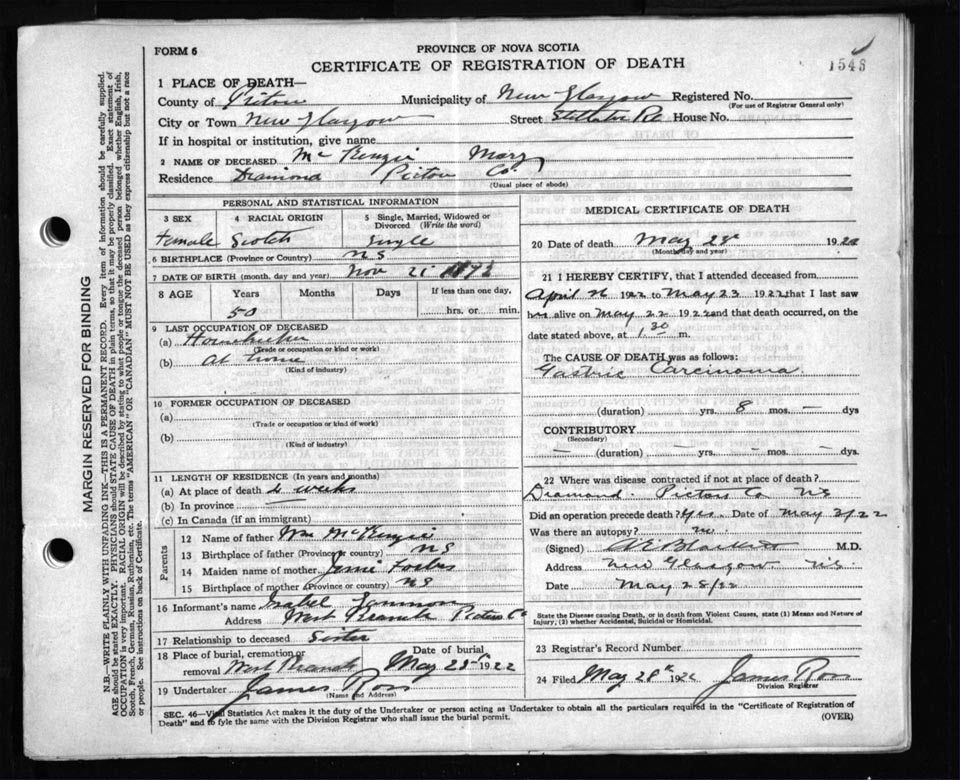 FORM 6
PROVINCE OF NOVA SCOTIA
CERTIFICATE OF REGISTRATION OF DEATH
1546
1 PLACE OF DEATH—
County of Pictou Municipality of New Glasgow Registered No.
(For use of Registrar General only)
City or Town New Glasgow Street Stellarton Rd House No.
If in hospital or institution, give name
2 NAME OF DECEASED McKenzie Mary
Residence Diamond Pictou Co.
(Usual place of abode)
PERSONAL AND STATISTICAL INFORMATION
3 SEX 4 RACIAL ORIGIN 5 Single, Married, Widowed or Divorced (Write the word)
Female Scotch Single
6 BIRTHPLACE (Province or Country) N S
7 DATE OF BIRTH (month, day and year) Nov 21
8 AGE Years Months Days If less than one day,
50 hrs. or min.
9 LAST OCCUPATION OF DECEASED
(a)
(Trade or occupation or kind or work)
(b) At home
(Kind of industry)
10 FORMER OCCUPATION OF DECEASED
(a)
(Trade or occupation or kind of work)
(b)
(Kind of industry)
11 LENGTH OF RESIDENCE (In years and months)
(a) At place of death weeks
(b) In province
(c) In Canada (if an immigrant)
Parents
12 Name of father Wm McKenzie
13 Birthplace of father (Province or country) N S
14 Maiden name of mother Forbes
15 Birthplace of mother (Province or country) N S
16 Informant's name Isabel
Address West Branch Pictou Co
17 Relationship to deceased Sister
18 Place of burial, cremation or removal West Branch Date of burial May 1922
19 Undertaker James Ross
(Name and Address)
MEDICAL CERTIFICATE OF DEATH
20 Date of death May 192
(Month, day and year)
21 I HEREBY CERTIFY, that I attended deceased from
April 1922 to May 23 1922, that I last saw
alive on May 22 1922 and that death occurred, on
date stated above, at 1 30 m.
The CAUSE OF DEATH was as follows:
Gastric Carcinoma
(duration) yrs. 8 mos. — dys
CONTRIBUTORY
(Secondary)
— (duration) — yrs. — mos. — dys
22 Where was disease contracted if not at place of death?
Diamond. Pictou Co NS
Did an operation precede death? Yes. Date of May 3/22
Was there an autopsy? no
(Signed) M.D.
Address New Glasgow N.S.
Date May 28/22
State the Disease causing Death, or in death from Violent Causes, state (1) Means and Nature of Injury, (2) whether Accidental, Suicidal or Homicidal.
23 Registrar's Record Number
24 Filed May 28th 1922 James Ross
Division Registrar
SEC. 46—Vital Statistics Act makes it the duty of the Undertaker or person acting as Undertaker to obtain all the particulars required in the "Certificate of Registration of
Death" and to fyle the same with the Division Registrar who shall issue the burial permit.
(OVER)
MARGIN RESERVED FOR BINDING
N.B.—WRITE PLAINLY WITH UNFADING INK—THIS IS A PERMANENT RECORD. Every item of information should be carefully supplied.
AGE should be stated EXACTLY. PHYSICIANS should STATE CAUSE OF DEATH in plain terms, so that it may be properly classified. Exact statement of
OCCUPATION is very important. RACIAL ORIGIN will be described by stating to what people or tongue the deceased person belonged whether English, Irish,
Scotch, French, German, Russian, Ruthenian, etc. The terms "AMERICAN" OR "CANADIAN" MUST NOT BE USED as they express citizenship but not a race
or people. See instructions on back of Certificate.